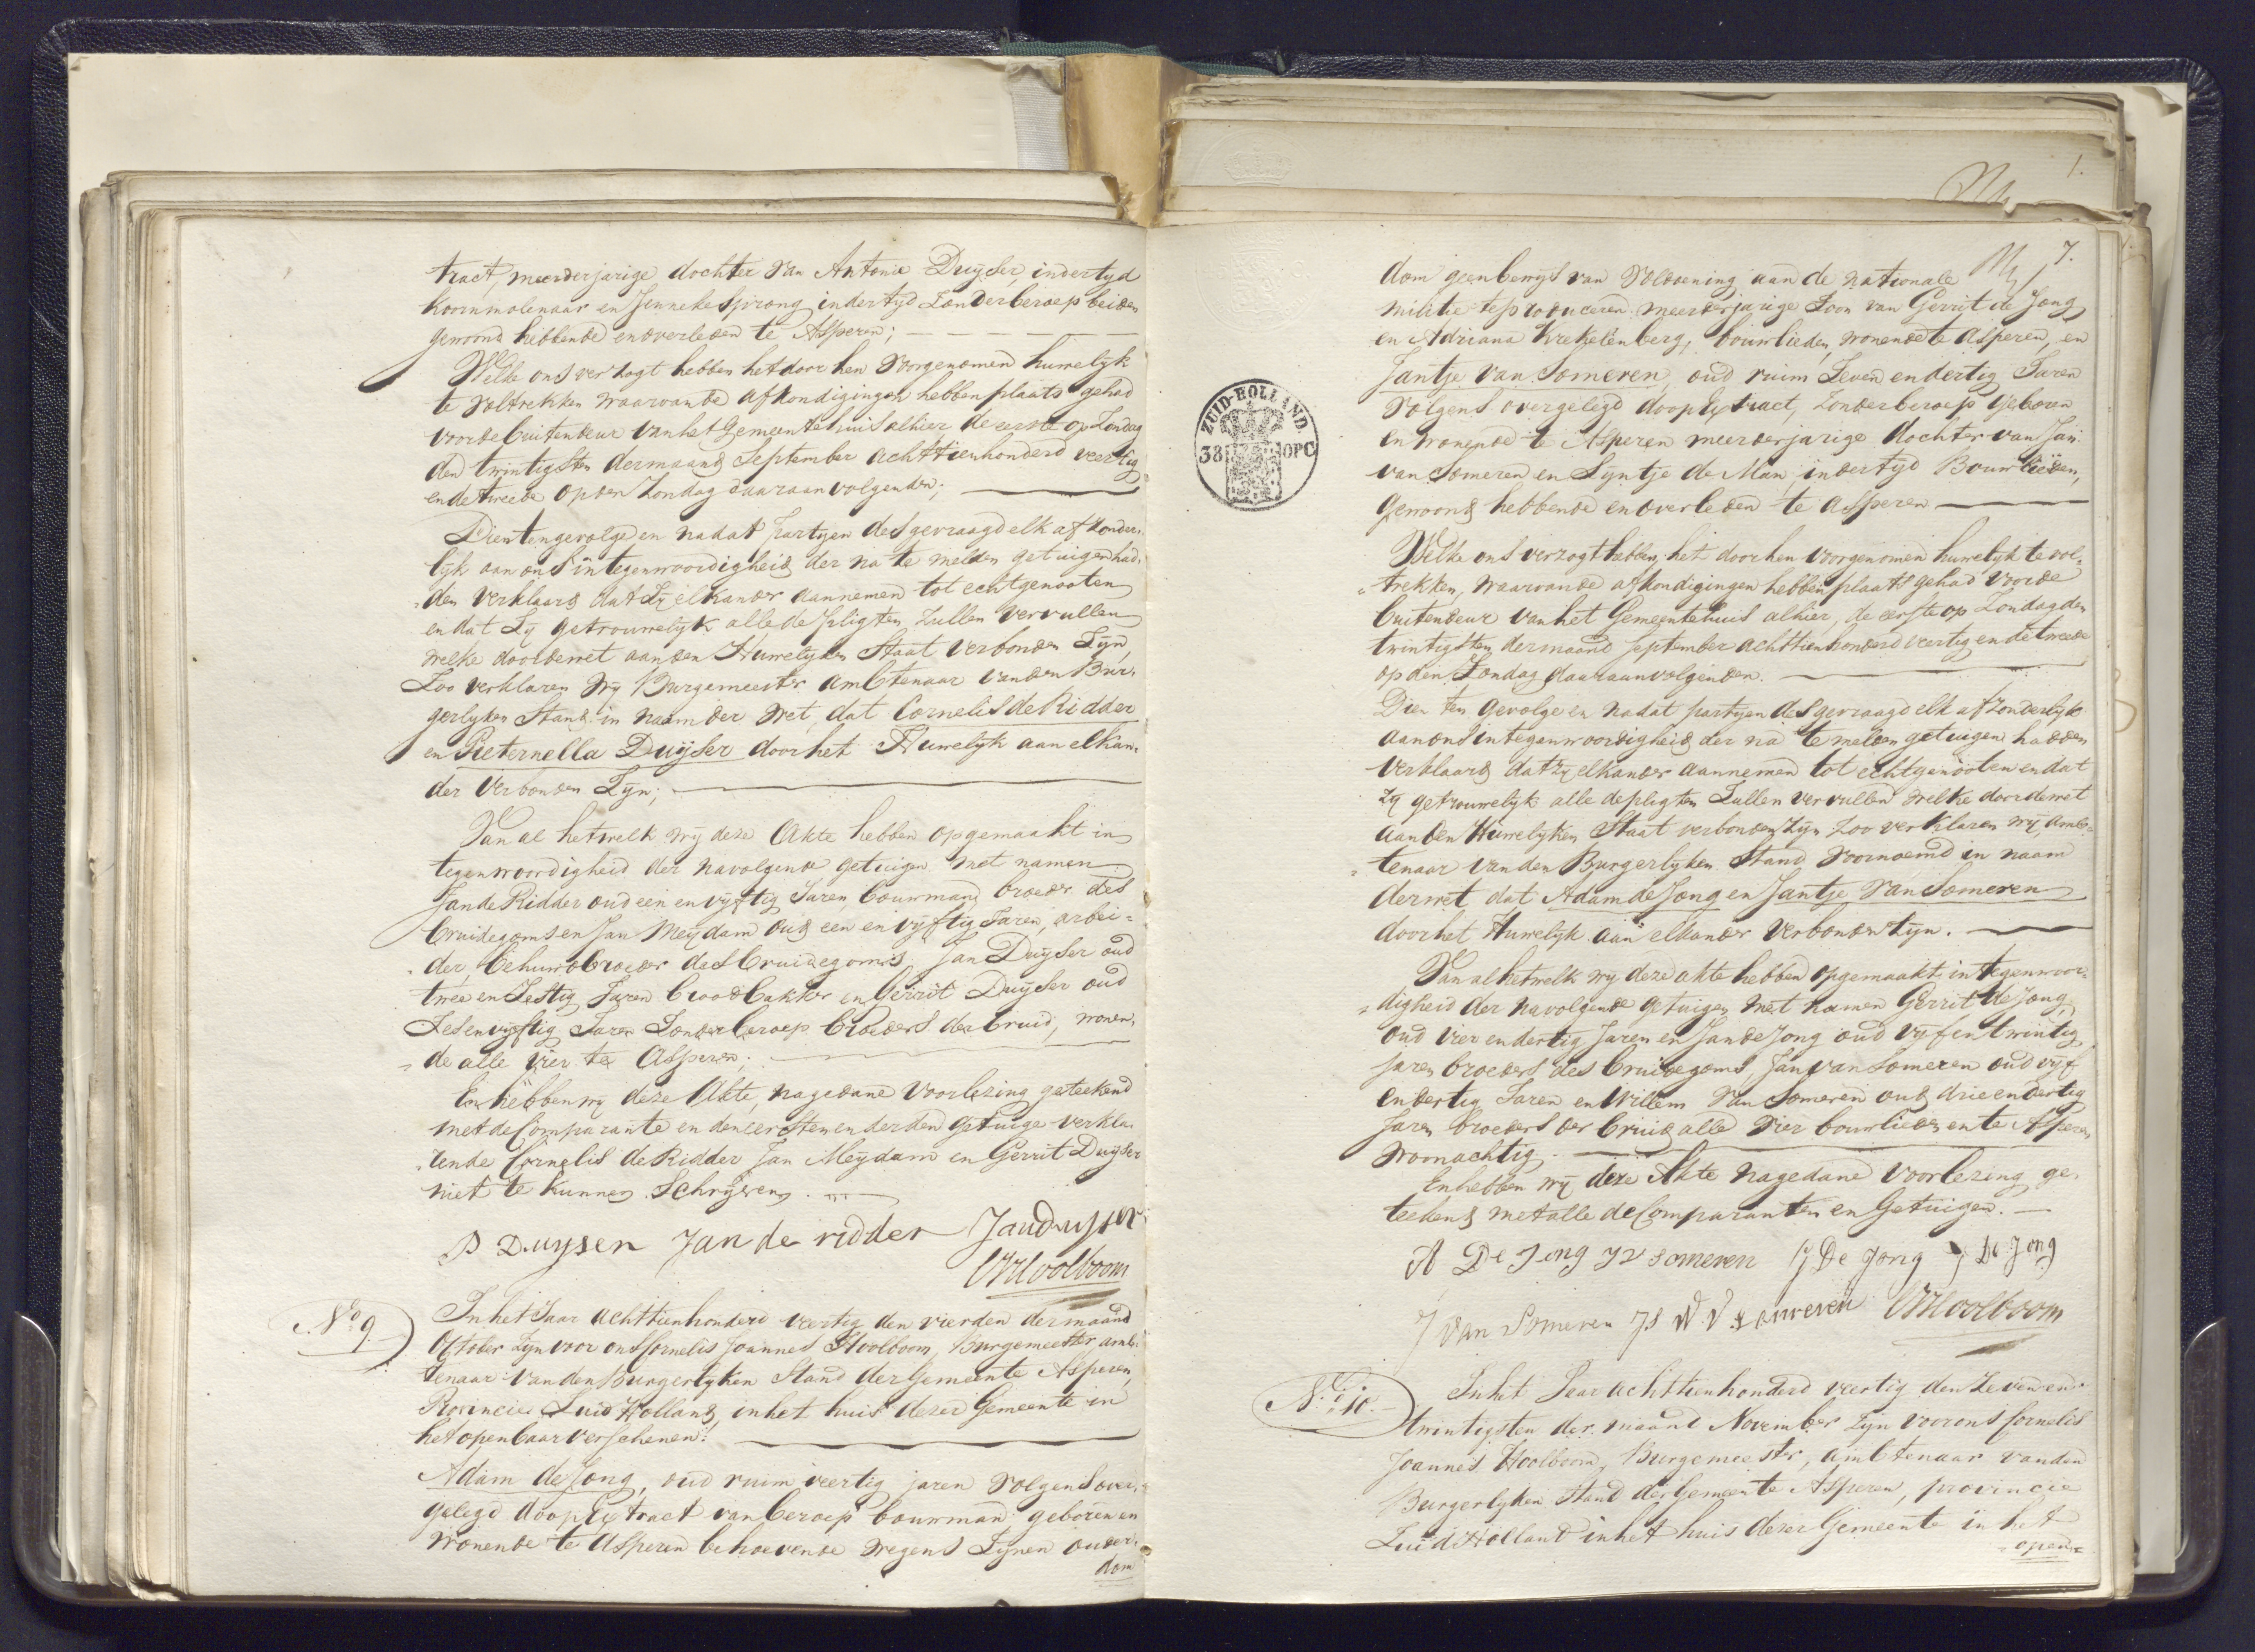 tract, meerderjarige dochter van Antonie Duijser, indertyd
koornmolenaar en Jenneke Sprong indertyd Zonder beroep beiden
gewoond hebbende en overleden te Asperen;
Welke ons verzogt hebben het door hen voorgenomen huwelyk
te voltrekken waarvan de afkondigingen hebben plaats gehad
voor de buitendeur van het Gemeentehuis alhier de eerste op Zondag
den twintigsten der maand September achttienhonderd veertig
en de tweede op den Zondag daaraanvolgenden;
Dientengevolge en nadat partyen desgevraagd elk afzonder-
lyk aan ons in tegenwoordigheid der na te melden getuigen had-
den verklaard dat Zy elkander aannemen tot echtgenooten
en dat Zy getrouwelyk alle de pligten zullen vervullen
welke door de wet aan den Huwelyken Staat verbonden Zyn,
Zoo verklaren Wy Burgemeester ambtenaar van den Bur-
gerlyken Stand in naam der Wet, dat Cornelis de Ridder
en Pieternella Duijser door het Huwelyk aan elkan-
der verbonden Zyn;
Van al hetwelk wy deze Akte hebben opgemaakt in
tegenwoordigheid der navolgende getuigen met namen
Jan de Ridder oud een en vyftig Jaren, bouwman, broeder des
bruidegoms en Jan Meydam oud een en vyftig Jaren, arbei-
der, behuwdbroeder des bruidegoms, Jan Duijser oud
twee en Sestig Jaren broodbakker en Gerrit Duijser oud
Zes en vyftig Jaren Zonder beroep broeders der bruid, wonen-
de alle vier te Asperen;
En hebben wy deze Akte, na gedane voorlezing geteekend
met de Comparante en den eersten en derden getuige verkla-
rende Cornelis de Ridder Jan Meydam en Gerrit Duijser
niet te kunnen Schryven.
P Duysen Jan de ridder Jan duysser
CJHoolboom
No. 9.
In het Jaar achttienhonderd veertig den vierden der maand
October zyn voor ons Cornelis Joannes Hoolboom, Burgemeester amb-
tenaar van den Burgerlyken Stand der Gemeente Asperen,
Provincie Zuid Holland, in het huis dezer Gemeente in
het openbaar verschenen:
Adam de Jong, oud ruim veertig jaren volgens over-
gelegd doopextract van beroep bouwman geboren en
wonende te Asperen behoevende wegens Zynen ouder-
dom
7.
dom geen bewys van voldoening aan de nationale
militie te produceren meerderjarige Zoon van Gerrit de Jong
en Adriana Krekelenberg, bouwlieden, wonende te Asperen, en
Jantje van Someren oud ruim Zeven en dertig Jaren
volgens overgelegd doopextract, zonder beroep geboren
en wonende te Asperen meerderjarige dochter van Jan
van Someren en Syntje de Man, indertyd Bouwlieden,
gewoond hebbende en overleden te Asperen
Welke ons verzogt hebben het door hen voorgenomen huwelyk te vol-
trekken, waarvan de afkondigingen hebben plaats gehad voor de
buitendeur van het Gemeentehuis alhier, de eerste op Zondag den
twintigsten der maand September achttienhonderd veertig en de tweede
op den Zondag daaraanvolgenden.
Dien ten gevolge en nadat partyen desgevraagd elk afzonderlyk
aan ons in tegenwoordigheid der na te melden getuigen hadden
verklaard dat zy elkander aannemen tot echtgenooten en dat
zy getrouwelyk alle de pligten Zullen vervullen welke door de wet
aan den Huwelyken Staat verbonden Zyn Zoo verklaren wy, amb-
tenaar van den Burgerlyken Stand voornoemd in naam
der wet dat Adam de Jong en Jantje van Someren
door het Huwelyk aan elkander verbonden Zyn.
Van al hetwelk wy deze akte hebben opgemaakt in tegenwoor-
digheid der navolgende getuigen met namen Gerrit de Jong,
oud vier en dertig Jaren en Jan de Jong oud vyf en twintig
Jaren broeders des bruidegoms, Jan van Someren oud vyf
en dertig Jaren en Willem van Someren oud drie en dertig
Jaren broeders der bruid alle vier bouwlieden en te Asperen
woonachtig.
En hebben wy deze Akte na gedane voorlezing ge-
teekend met alle de Comparanten en Getuigen.
A De Jong J V someren G De Jong J De Jong
J van Someren JS W. V Someren CJHoolboom
No. 10.
In het Jaar achttienhonderd veertig den Zeven en
twintigsten der maand November Zyn voor ons Cornelis
Joannes Hoolboom, Burgemeester, ambtenaar van den
Burgerlyken Stand der Gemeente Asperen, provincie
Zuid Holland in het huis dezer Gemeente in het
open-
ZUID-HOLLAND.
38 10PC
1.